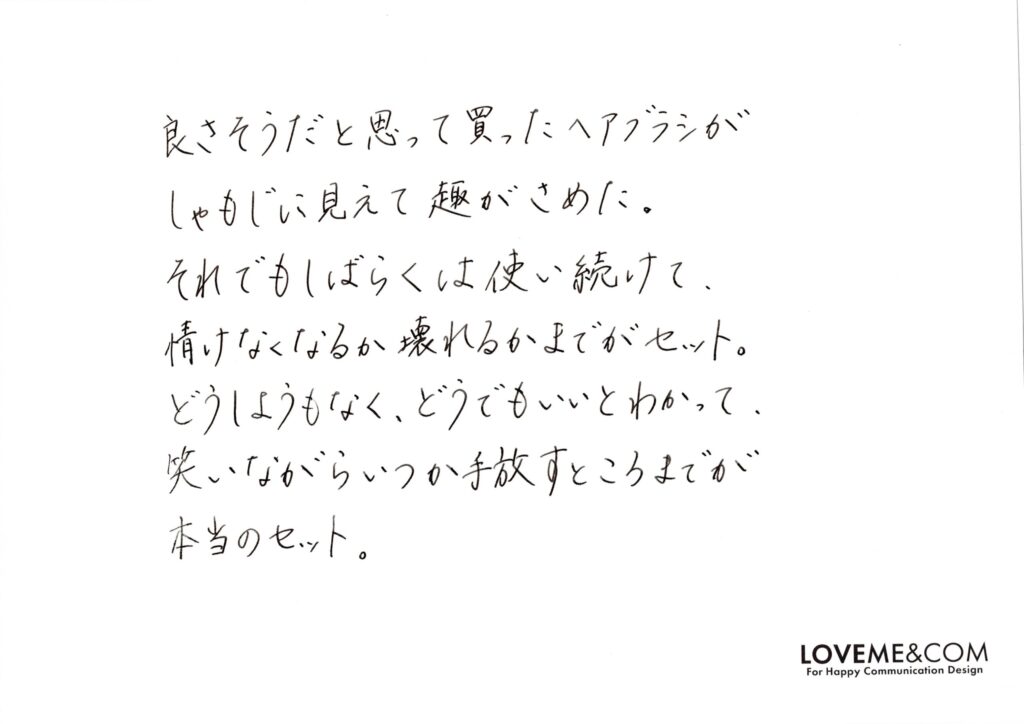 良さそうだと思って買ったヘアブラシが
しゃもじに見えて趣がさめた。
それでもしばらくは使い続けて、
情けなくなるか壊れるかまでがセット。
どうしようもなく、どうでもいいとわかって、
笑いながらいつか手放すところまでが
本当のセット。
LOVEME&COM
For Happy Communication Design